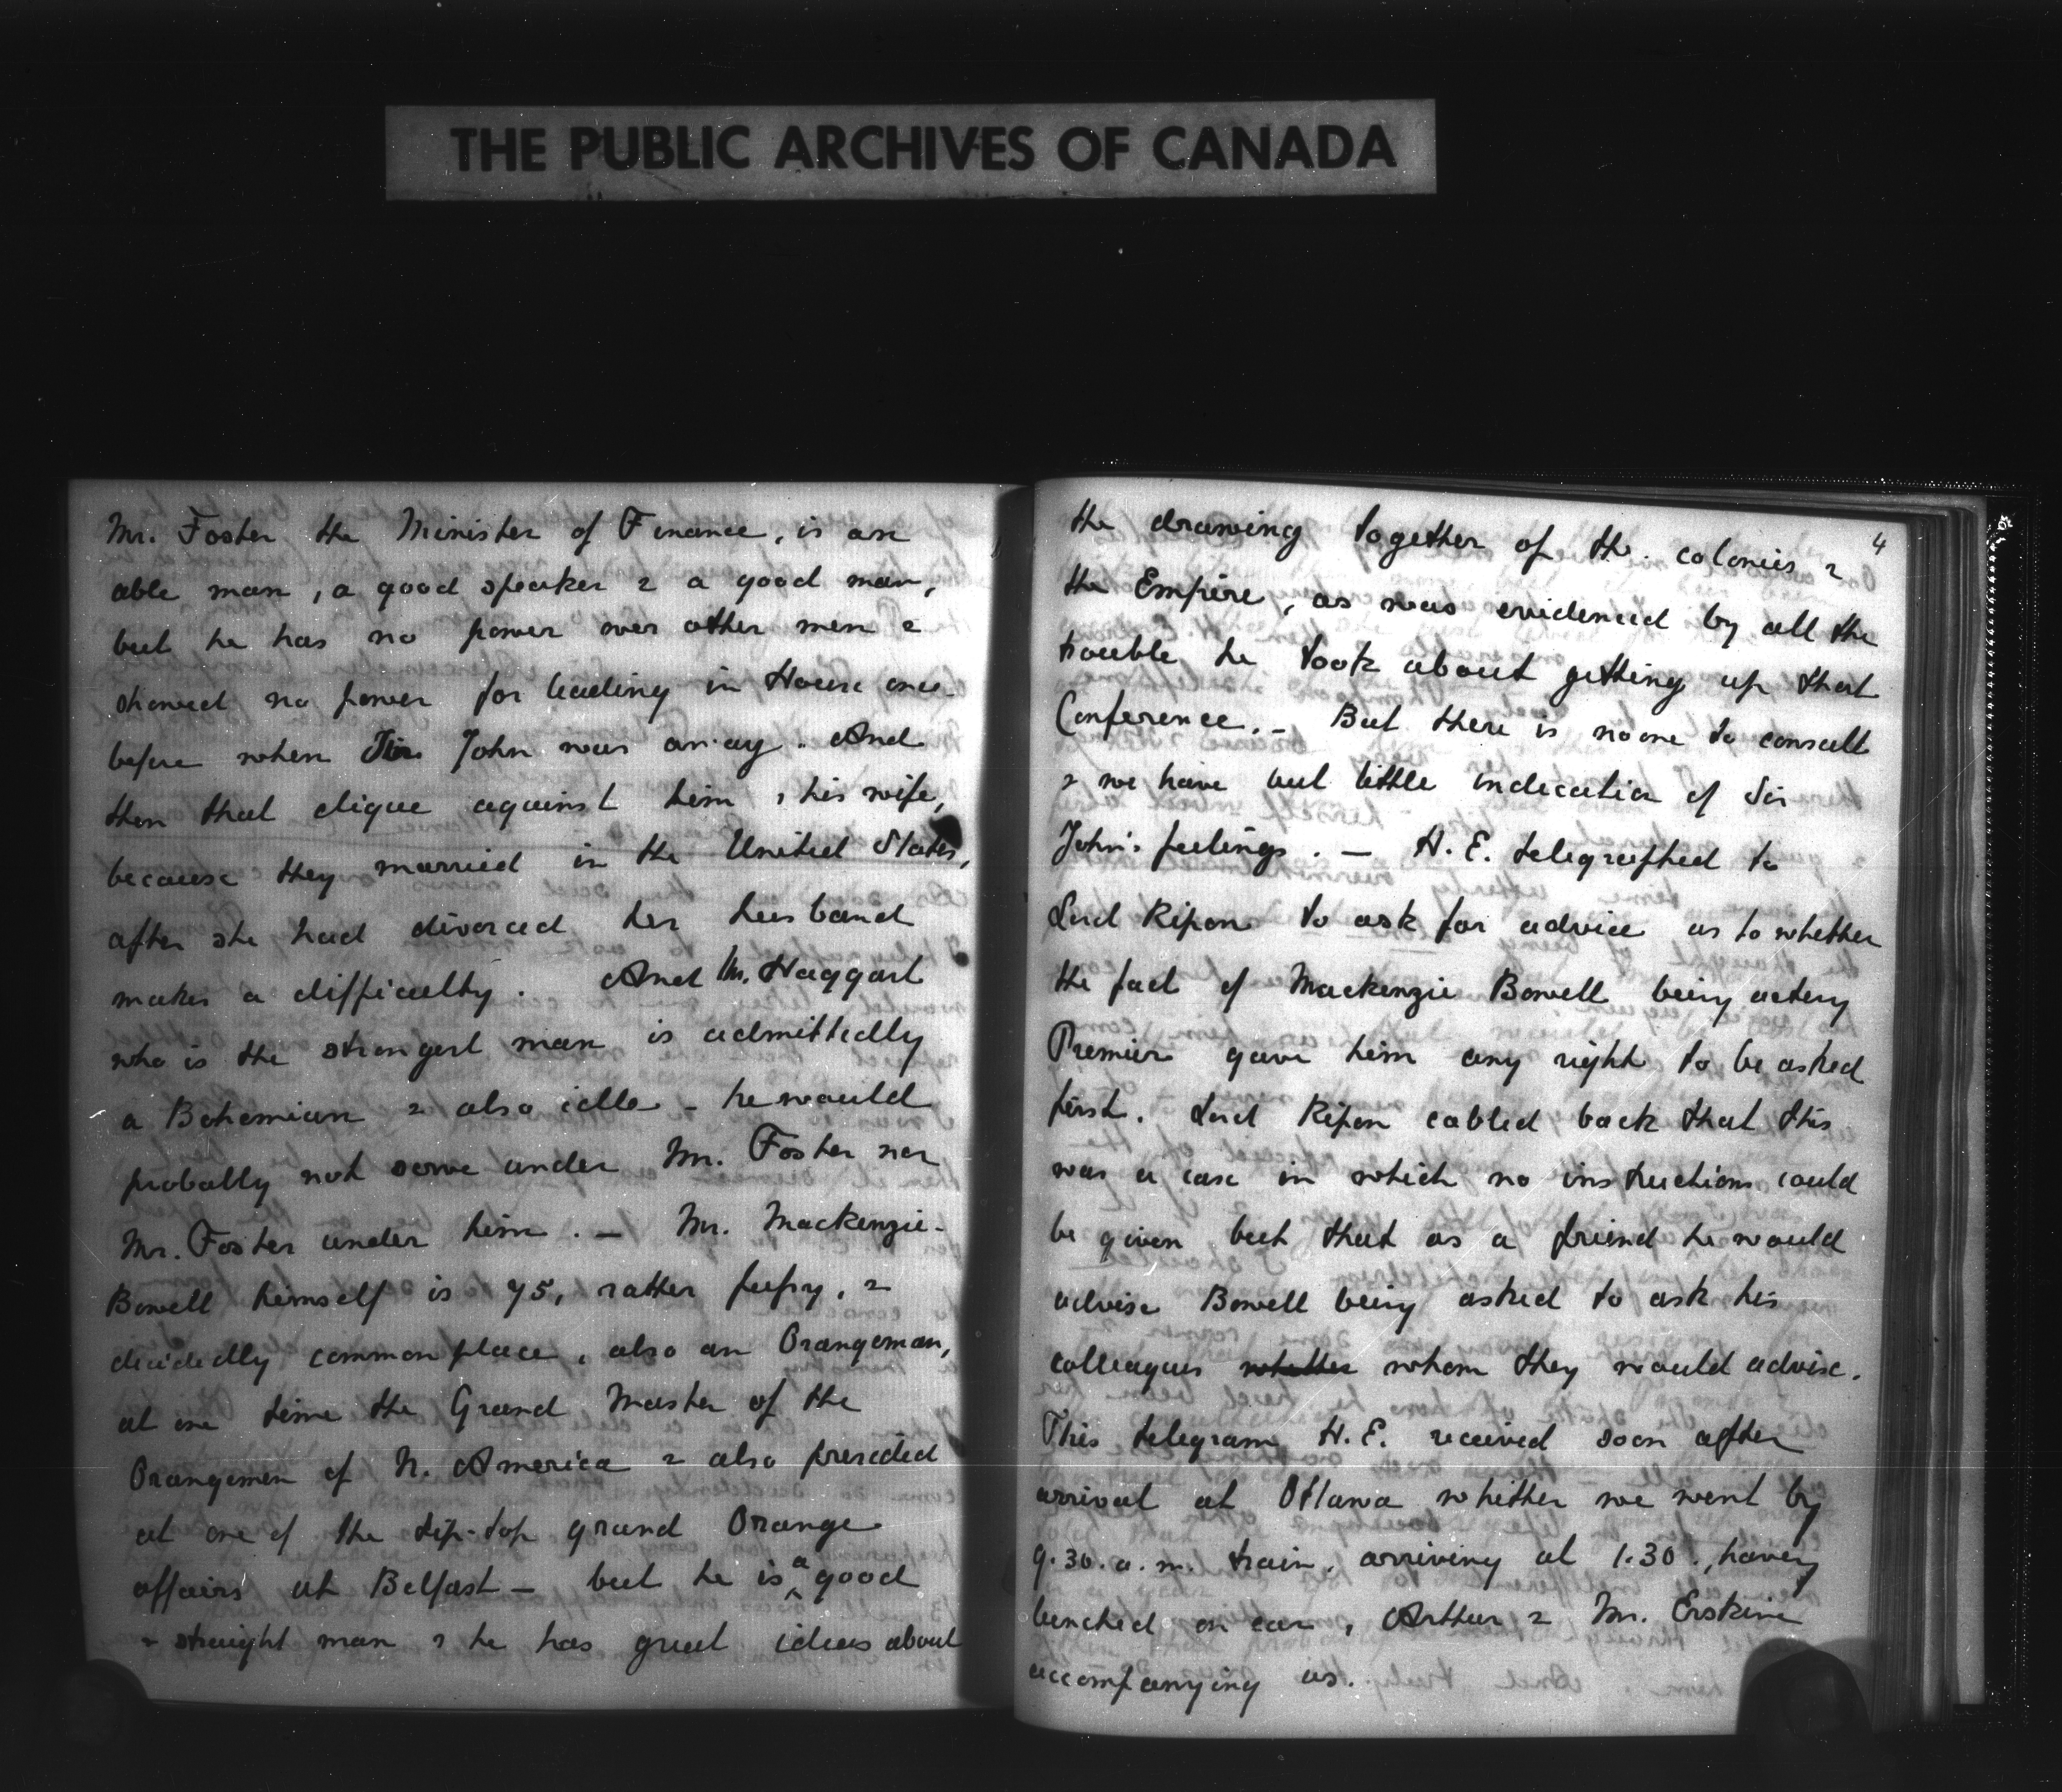 THE PUBLIC ARCHIVES OF CANADA
Mr. Foster the Minister of Finance, is an
able man, a good speaker & a good man,
but he has no power over other men &
showed no power for leading in House once
before when Sir John was away. And
then that clique against him & his wife,
because they married in the United States,
after she had divorced her husband
makes a difficulty. And Mr. Haggart
who is the strongest man is admittedly
a Bohemian & also idle - he would
probably not serve under Mr. Foster nor
Mr. Foster under him. — Mr. Mackenzie-
Bowell himself is 75, rather fussy, &
decidedly commonplace, also an Orangeman,
at one time the Grand Master of the
Orangemen of N. America & also presided
at one of the tip-top grand Orange
affairs at Belfast — but he is a good
& straight man & he has great ideas about
4
the drawing together of the colonies &
the Empire, as was evidenced by all the
trouble he took about getting up that
Conference. - But there is no one to consult
& we have but little indication of Sir
John's feelings. — H.E. telegraphed to
Lord Ripon to ask for advice as to whether
the fact of Mackenzie Bowell being acting
Premier gave him any right to be asked
first. Lord Ripon cabled back that this
was a case in which no instructions could
be given but that as a friend he would
advise Bowell being asked to ask his
colleagues whether whom they would advise.
This telegram H.E. received soon after
arrival at Ottawa whither we went by
9.30. a.m. train, arriving at 1.30., having
lunched on car, Arthur & Mr. Erskine
accompanying us.